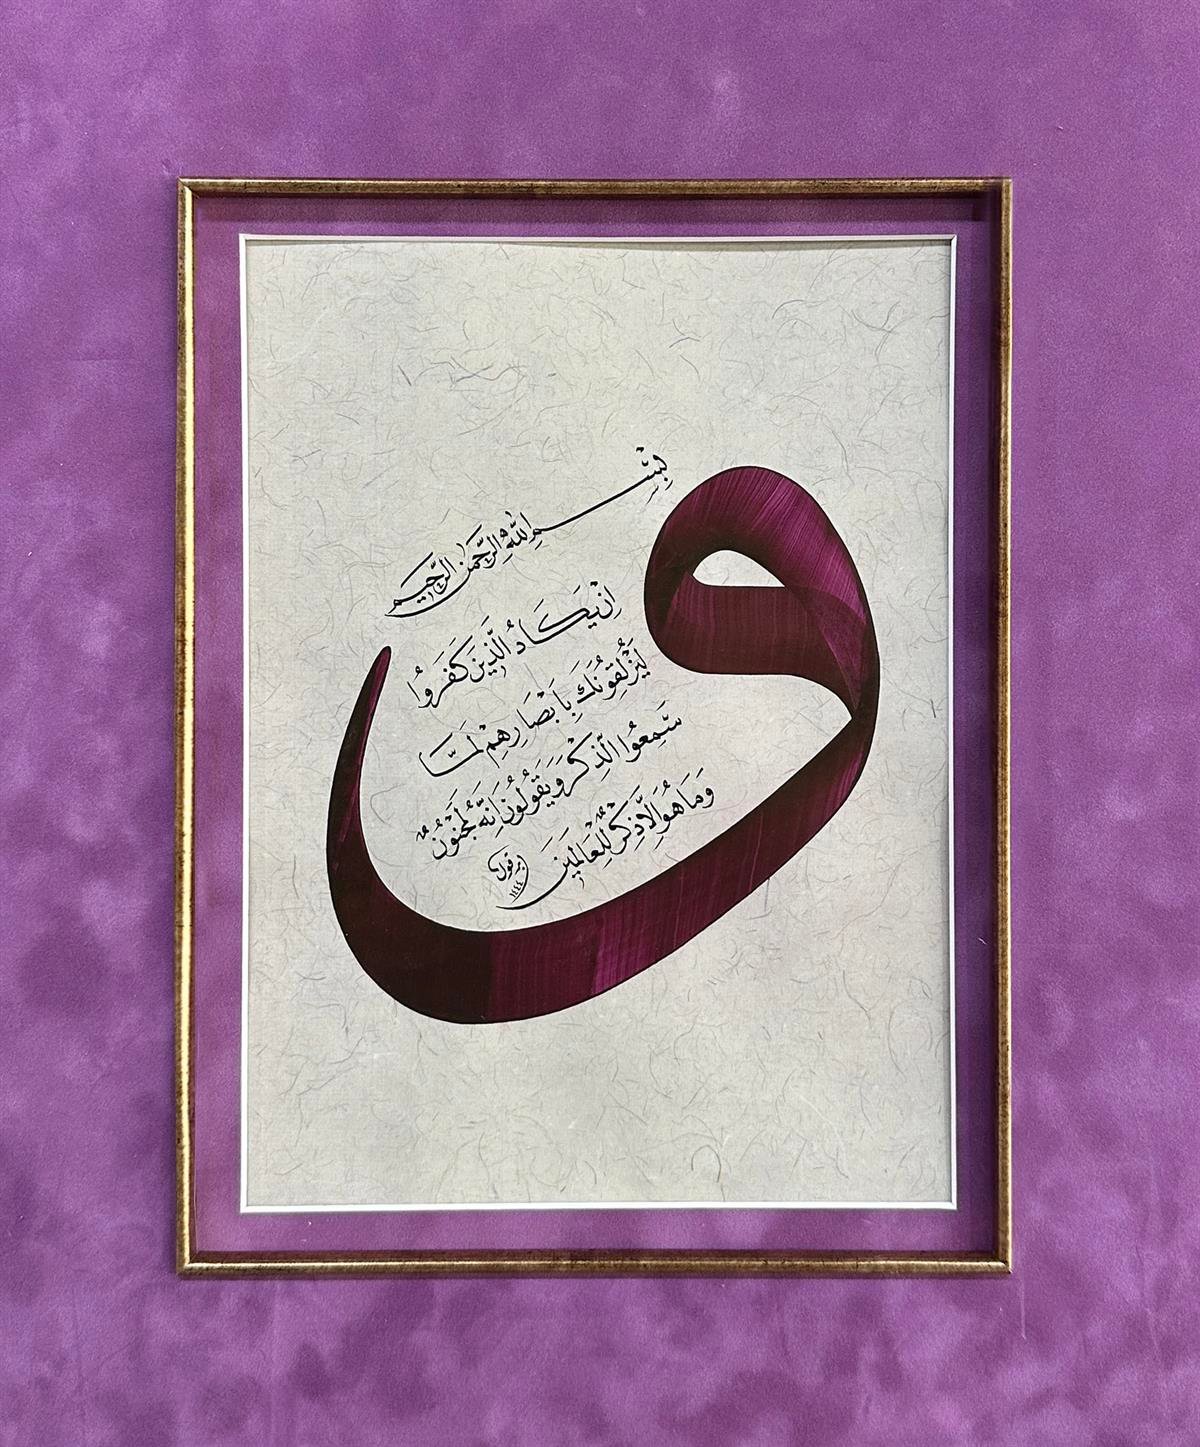 و
بِسْمِ اللّٰهِ الرَّحْمٰنِ الرَّحِيمِ
اِنْ يَكَادُ الَّذِينَ كَفَرُوا
لَيُزْلِقُونَكَ بِاَبْصَارِهِمْ لَمَّا
سَمِعُوا الذِّكْرَ وَيَقُولُونَ اِنَّهُ لَمَجْنُونٌ
وَمَا هُوَ اِلَّا ذِكْرٌ لِلْعَالَمِينَ
١٤٤٤